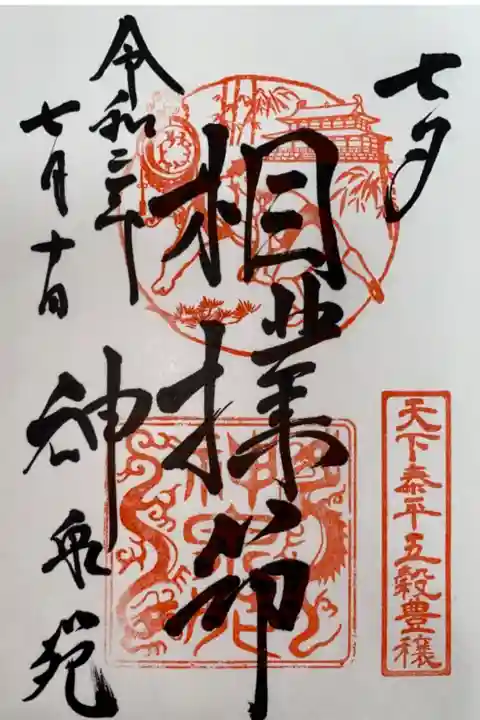 七夕
天下泰平五穀豊穣
相撲節
令和二年
七月十日
神泉苑